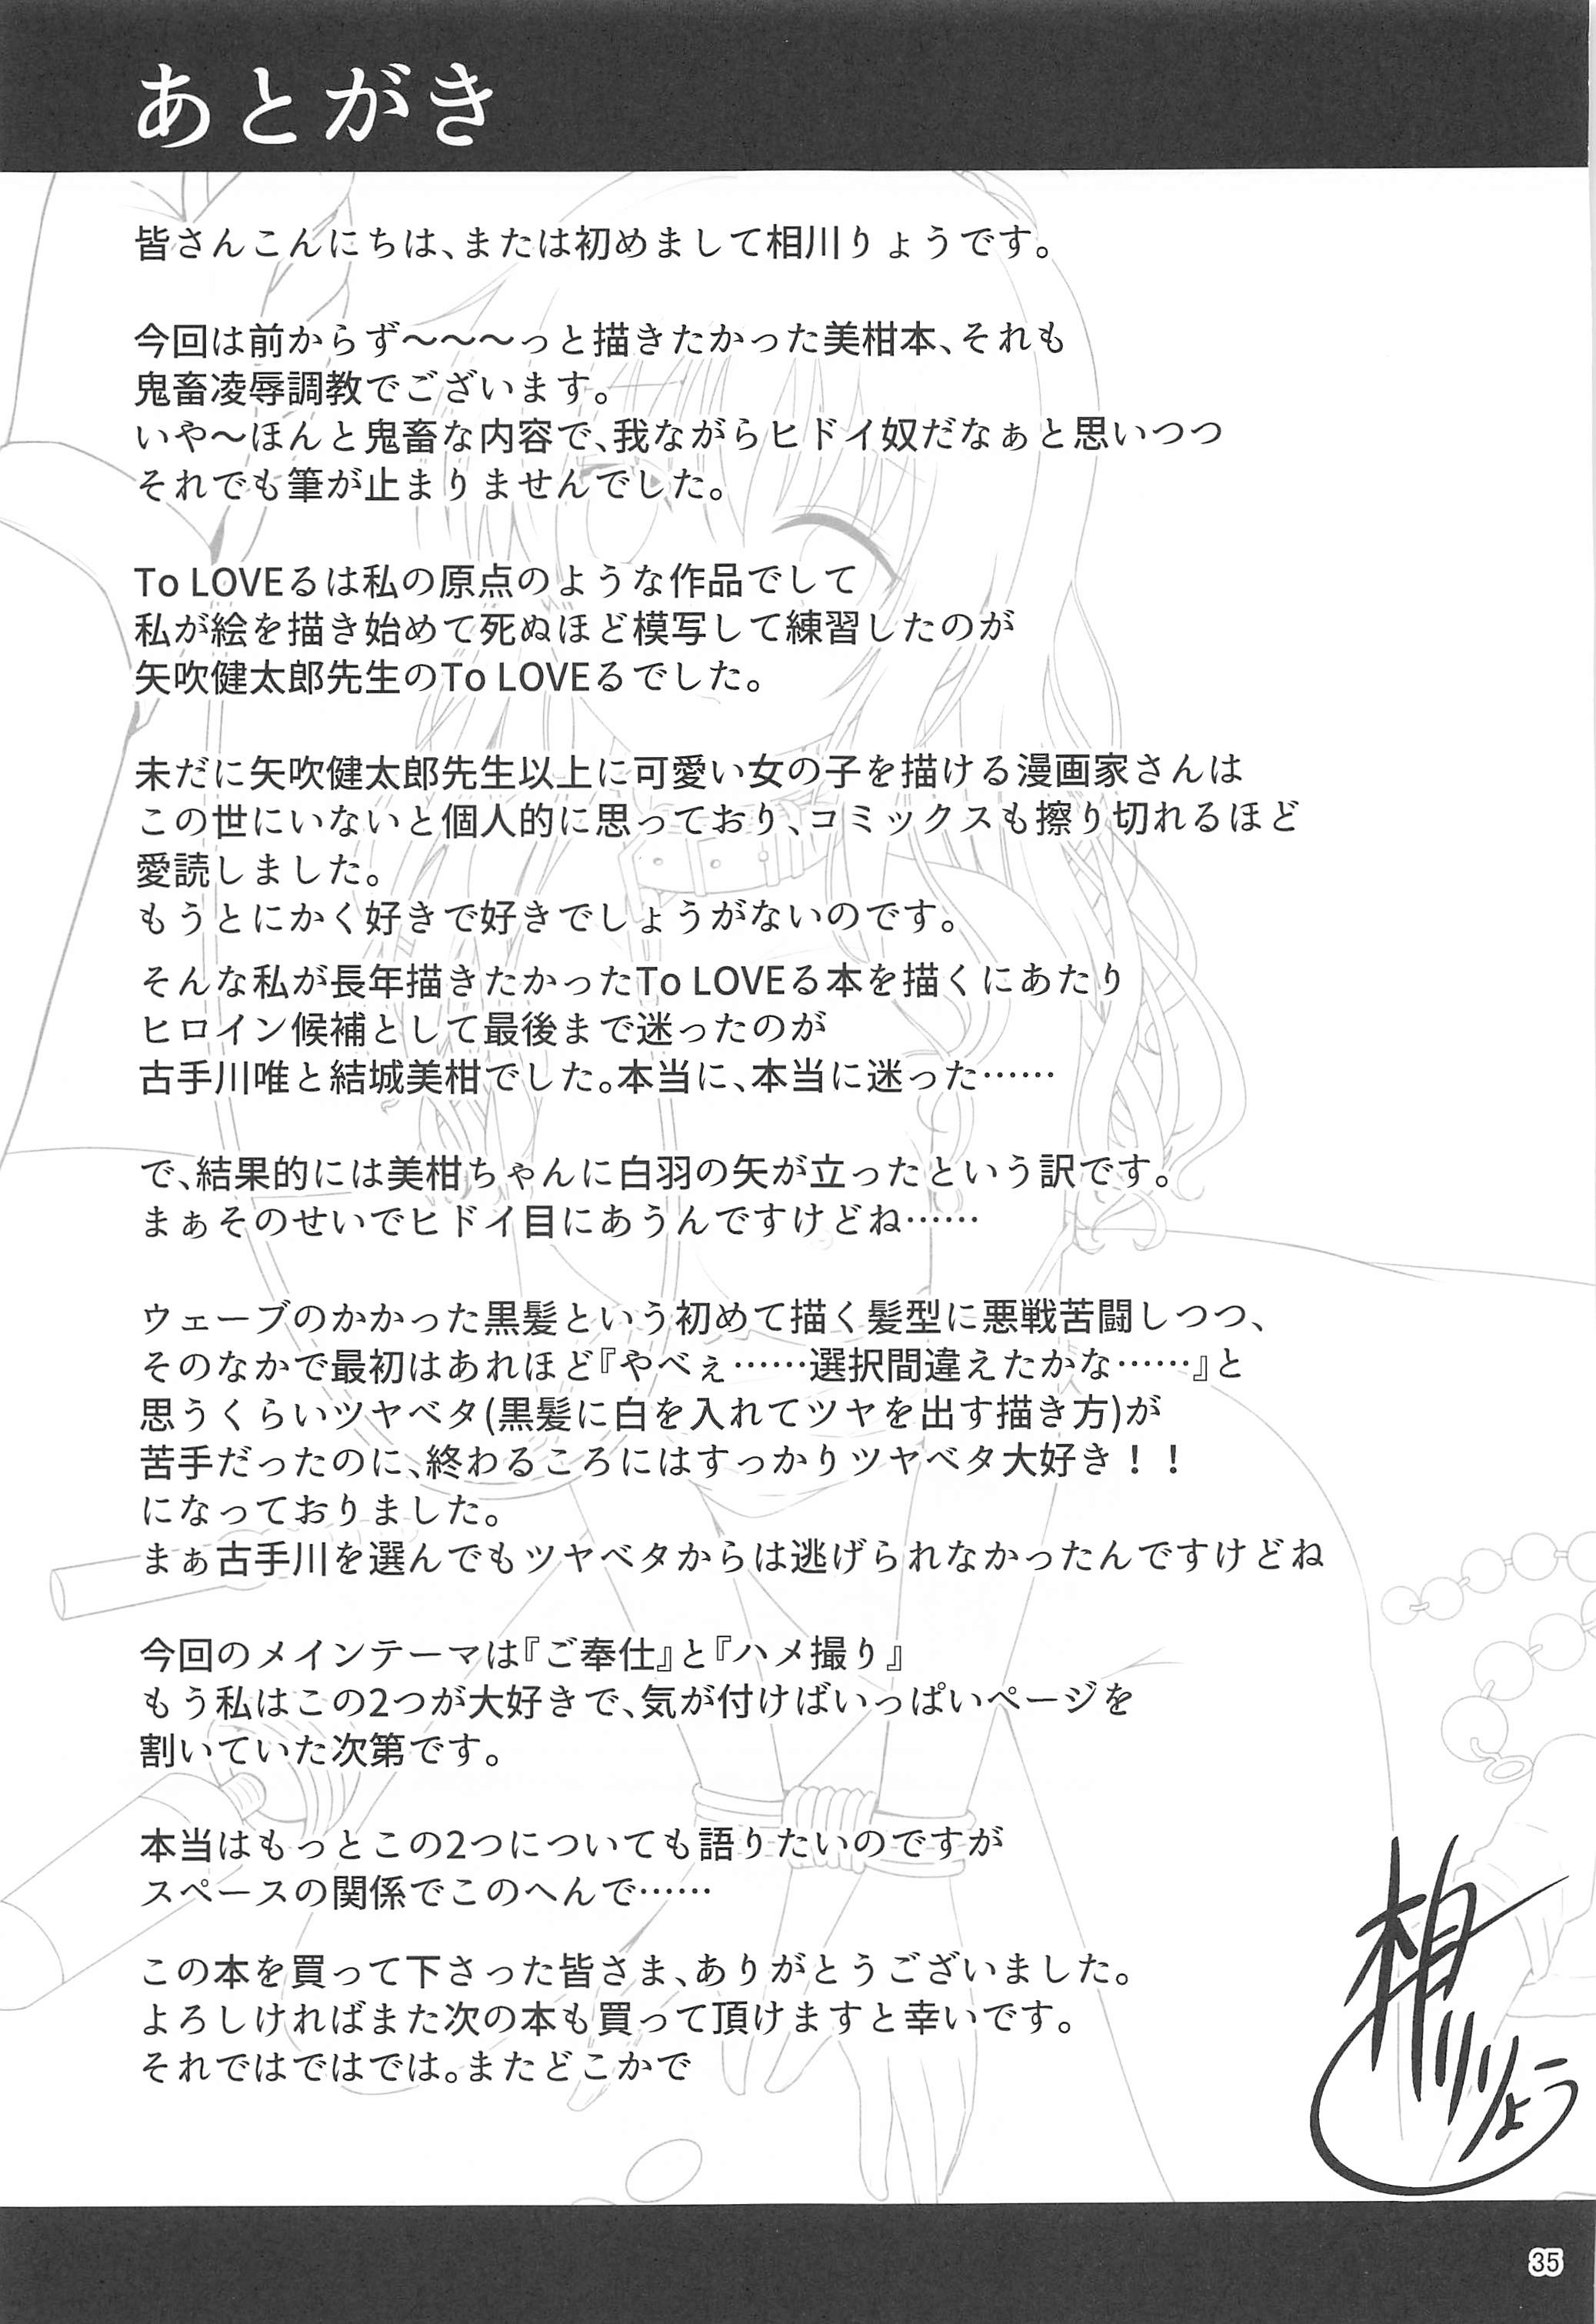 あとがき
皆さんこんにちは、または初めまして相川りょうです。
今回は前からず～～～っと描きたかった美柑本、それも
鬼畜凌辱調教でございます。
いや～ほんと鬼畜な内容で、我ながらヒドイ奴だなぁと思いつつ
それでも筆が止まりませんでした。
To LOVEるは私の原点のような作品でして
私が絵を描き始めて死ぬほど模写して練習したのが
矢吹健太郎先生のTo LOVEるでした。
未だに矢吹健太郎先生以上に可愛い女の子を描ける漫画家さんは
この世にいないと個人的に思っており、コミックスも擦り切れるほど
愛読しました。
もうとにかく好きで好きでしょうがないのです。
そんな私が長年描きたかったTo LOVEる本を描くにあたり
ヒロイン候補として最後まで迷ったのが
古手川唯と結城美柑でした。本当に、本当に迷った……
で、結果的には美柑ちゃんに白羽の矢が立ったという訳です。
まぁそのせいでヒドイ目にあうんですけどね……
ウェーブのかかった黒髪という初めて描く髪型に悪戦苦闘しつつ、
そのなかで最初はあれほど『やべぇ……選択間違えたかな……』と
思うくらいツヤベタ(黒髪に白を入れてツヤを出す描き方)が
苦手だったのに、終わるころにはすっかりツヤベタ大好き！！
になっておりました。
まぁ古手川を選んでもツヤベタからは逃げられなかったんですけどね
今回のメインテーマは『ご奉仕』と『ハメ撮り』
もう私はこの2つが大好きで、気が付けばいっぱいページを
割いていた次第です。
本当はもっとこの2つについても語りたいのですが
スペースの関係でこのへんで……
この本を買って下さった皆さま、ありがとうございました。
よろしければまた次の本も買って頂けますと幸いです。
それではではでは。またどこかで
相川りょう
35